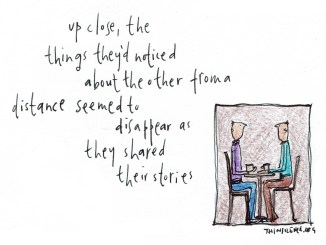 up close, the
things they'd noticed
about the other from a
distance seemed to
disappear as
they shared
their stories